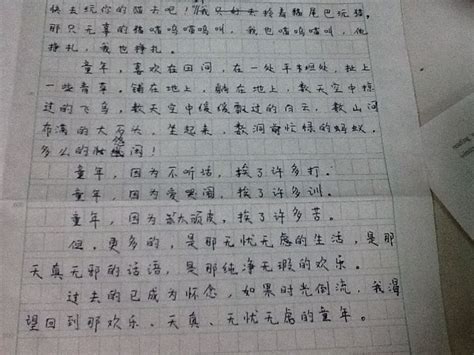 快去玩你的猫去吧！”我只好去拎着猫尾巴玩猫。
那只无辜的猫喵呜喵呜叫，我也喵呜喵叫，他
挣扎，我也挣扎。
童年，喜欢在田间，在一处平坦处，扯上
一些青草，铺在地上，躺在地上，数天空中惊
过的飞鸟，数天空中缓缓飘过的白云，数山间
布满的大石头，坐起来，数洞前忙碌的蚂蚁，
多么的悠闲！
童年，因为不听话，挨了许多打。
童年，因为爱哭闹，挨了许多训。
童年，因为太顽皮，挨了许多苦。
但，更多的，是那无忧无虑的生活，是那
天真无邪的话语，是那纯净无瑕的欢乐。
过去的已成为怀念，如果时光倒流，我渴
望回到那欢乐、天真、无忧无虑的童年。